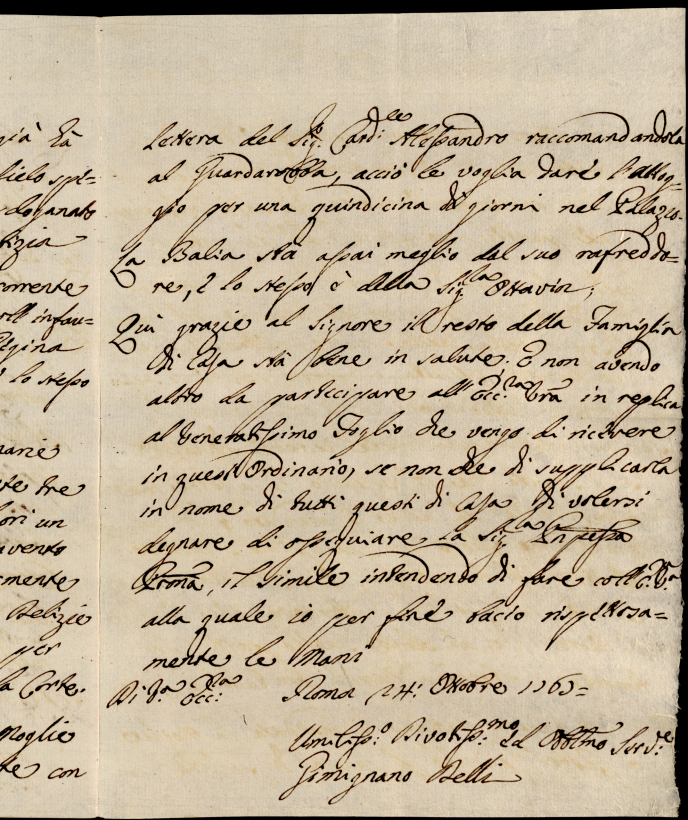 già hà
lielo spe=
doganato
tizia
corrente
nell' infau=
Regina
è lo stesso
marie
te tre
lori un
avento
mente
Belizie
per
la Corte.
moglie
te con
lettera del Sig.r Card:le Alessandro raccomandandola
al Guardarobba, acciò le voglia dare l'allog=
gio per una quindicina di giorni nel Palazzo.
La Balia stà assai meglio dal suo rafreddo=
re, e lo stesso è della Sig.la Ottavia;
Qui grazie al Signore il resto della Famiglia
di Casa stà bene in salute. E non avendo
altro da partecipare all' Ecc:za Vrā in replica
al Veneratissimo Foglio che vengo di ricevere
in quest'Ordinario, se non che di supplicarla
in nome di tutti questi di Casa di volersi
degnare di ossequiare la Sig.ra Pn̄pessa
il simile intendendo di fare coll'E: V.ra
alla quale io per fine bacio rispettosa=
mente le Mani
Di V.ra Ecc:za Roma 24: Ottobre 1765=
Umiliss:o Divotiss:mo ed Obblm̄o Serv:e
Gimignano Belli